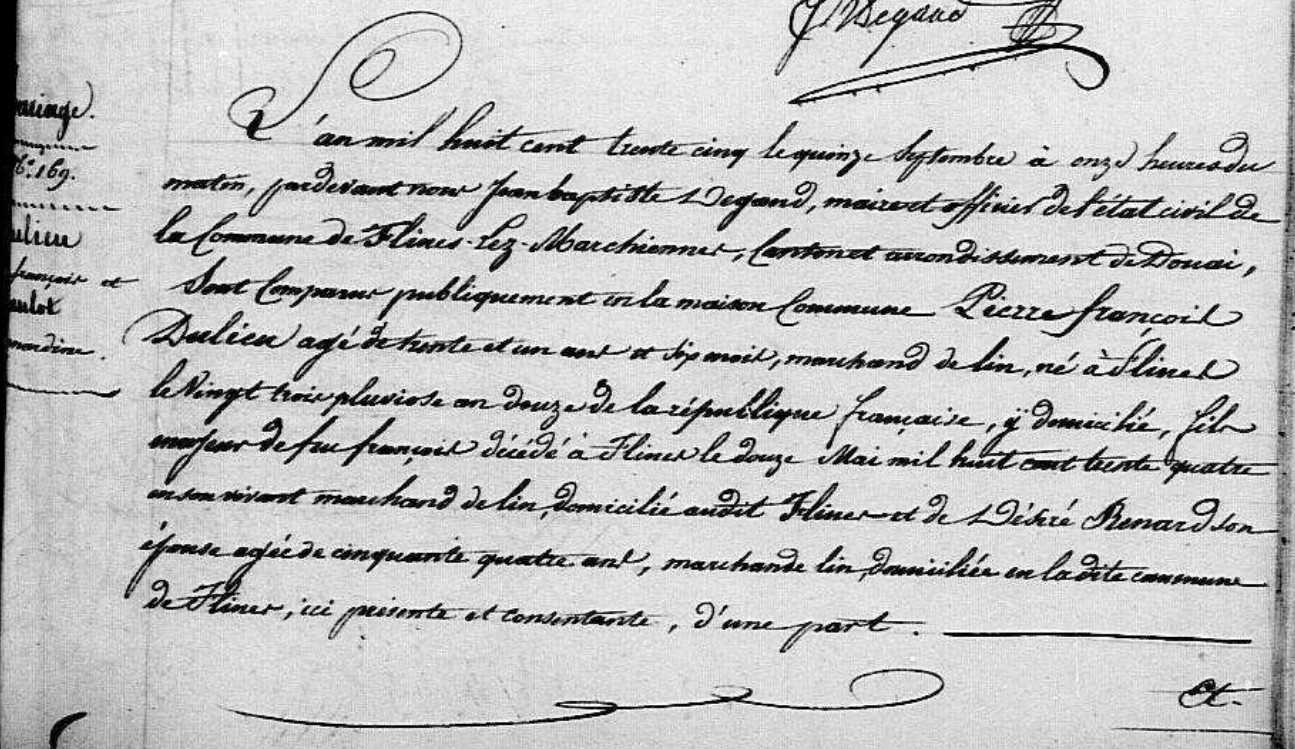 J. Degand
L'an mil huit cent trente cinq le quinze Septembre à onze heures du
matin, pardevant nous Jean baptiste Degand, maire et officier de l'état civil de
la Commune de Flines-Lez-Marchiennes, Canton et arrondissement de Douai,
Sont Comparus publiquement en la maison Commune Pierre françois
Dulieu agé de trente et un ans et sept mois, marchand de lin, né à Flines
le Vingt trois pluviose an douze de la république française, ÿ domicilié, fils
majeur de feu françois décédé à Flines le douze Mai mil huit cent trente quatre
en son vivant marchand de lin, domicilié audit Flines et de Désiré Renard son
épouse agée de cinquante quatre ans, marchande lin, domiciliée en la dite commune
de Flines, ici présente et consentante, d'une part.
Et.
ariage.
No. 169.
ulieu
françois et
ulot
nardine.